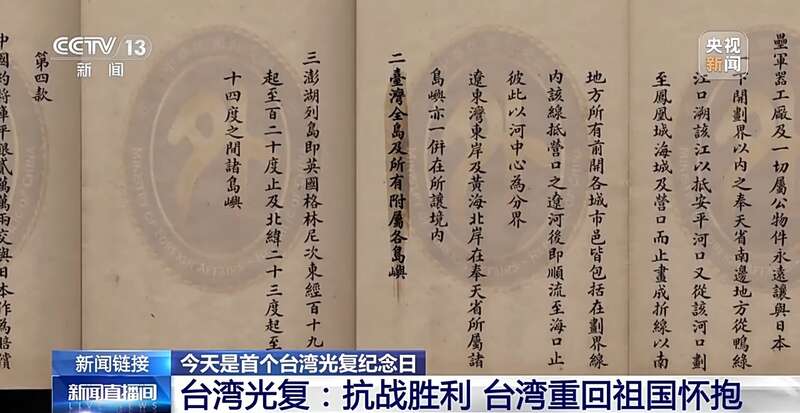 CCTV 13
新闻
央视
新闻
壘軍器工廠及一切屬公物件永遠讓與日本
下開劃界以內之奉天省南邊地方從鴨綠
江口溯該江以抵安平河口又從該河口劃
至鳳凰城海城及營口而止畫成折線以南
地方所有前開各城市邑皆包括在劃界線
內該線抵營口之遼河後即順流至海口止
彼此以河中心為分界
遼東灣東岸及黃海北岸在奉天省所屬諸
島嶼亦一併在所讓境內
二臺灣全島及所有附屬各島嶼
三澎湖列島即英國格林尼次東經百十九
起至百二十度止及北緯二十三度起至
十四度之間諸島嶼
第四款
中國約將庫平銀貳萬萬兩交與日本作為賠償
新闻链接
今天是首个台湾光复纪念日
新闻直播间
台湾光复：抗战胜利 台湾重回祖国怀抱